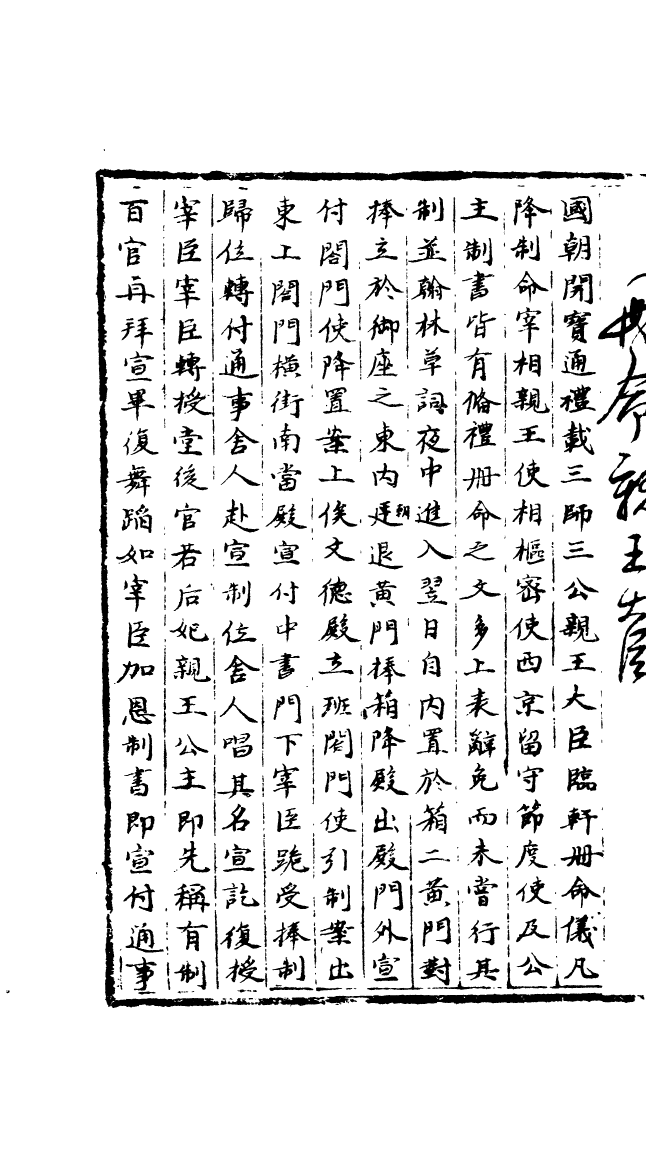 冊命親王大臣
國朝開寶通禮載三師三公親王大臣臨軒冊命儀凡
降制命宰相親王使相樞密使西京留守節度使及公
主制書皆有偹禮冊命之文多上表辭免而未嘗行其
制並翰林草詞夜中進入翌日自内置於箱二黄門對
捧立於御座之東内廷朝退黄門捧箱降殿出殿門外宣
付閤門使降置案上俟文德殿立班閤門使引制案出
東上閤門橫街南當殿宣付中書門下宰臣跪受捧制
歸位轉付通事舍人赴宣制位舍人唱其名宣訖復授
宰臣宰臣轉授堂後官若后妃親王公主即先稱有制
百官再拜宣畢復舞蹈如宰臣加恩制書即宣付通事